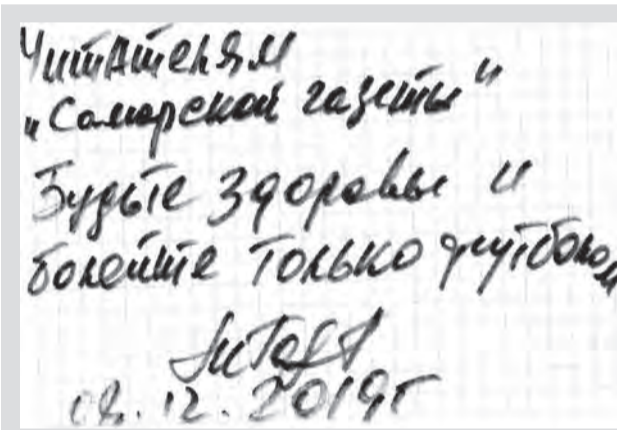 Читателям
"Самарской газеты"
Будьте здоровы и
болейте только футболом
12.2019г